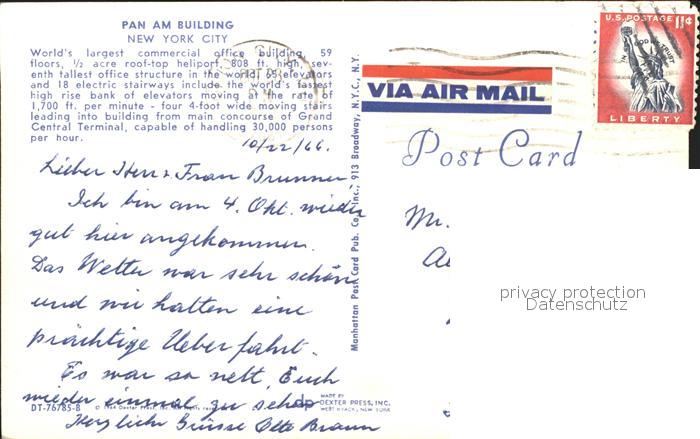 PAN AM BUILDING
NEW YORK CITY
World's largest commercial office building, 59
floors, ½ acre roof-top heliport, 808 ft. high, sev-
enth tallest office structure in the world, 65 elevators
and 18 electric stairways include the world's fastest
high rise bank of elevators moving at the rate of
1,700 ft. per minute - four 4-foot wide moving stairs
leading into building from main concourse of Grand
Central Terminal, capable of handling 30,000 persons
per hour.
10/22/66.
Lieber Herr & Frau Brunner
Ich bin am 4. Okt. wieder
gut hier angekommen.
Das Wetter war sehr schön
und wir hatten eine
prächtige Ueberfahrt.
Es war so nett, Euch
wieder einmal zu sehen
Herzliche Grüsse Otto Braun
DT-76785-B
© 1964 Dexter Press, Inc.
dp
MADE BY
DEXTER PRESS, INC.
WEST NYACK, NEW YORK
Manhattan Post Card Pub. Co., Inc., 913 Broadway, N.Y.C., N.Y.
VIA AIR MAIL
Post Card
U.S. POSTAGE
11¢
IN GOD WE TRUST
LIBERTY
Mr.
privacy protection
Datenschutz